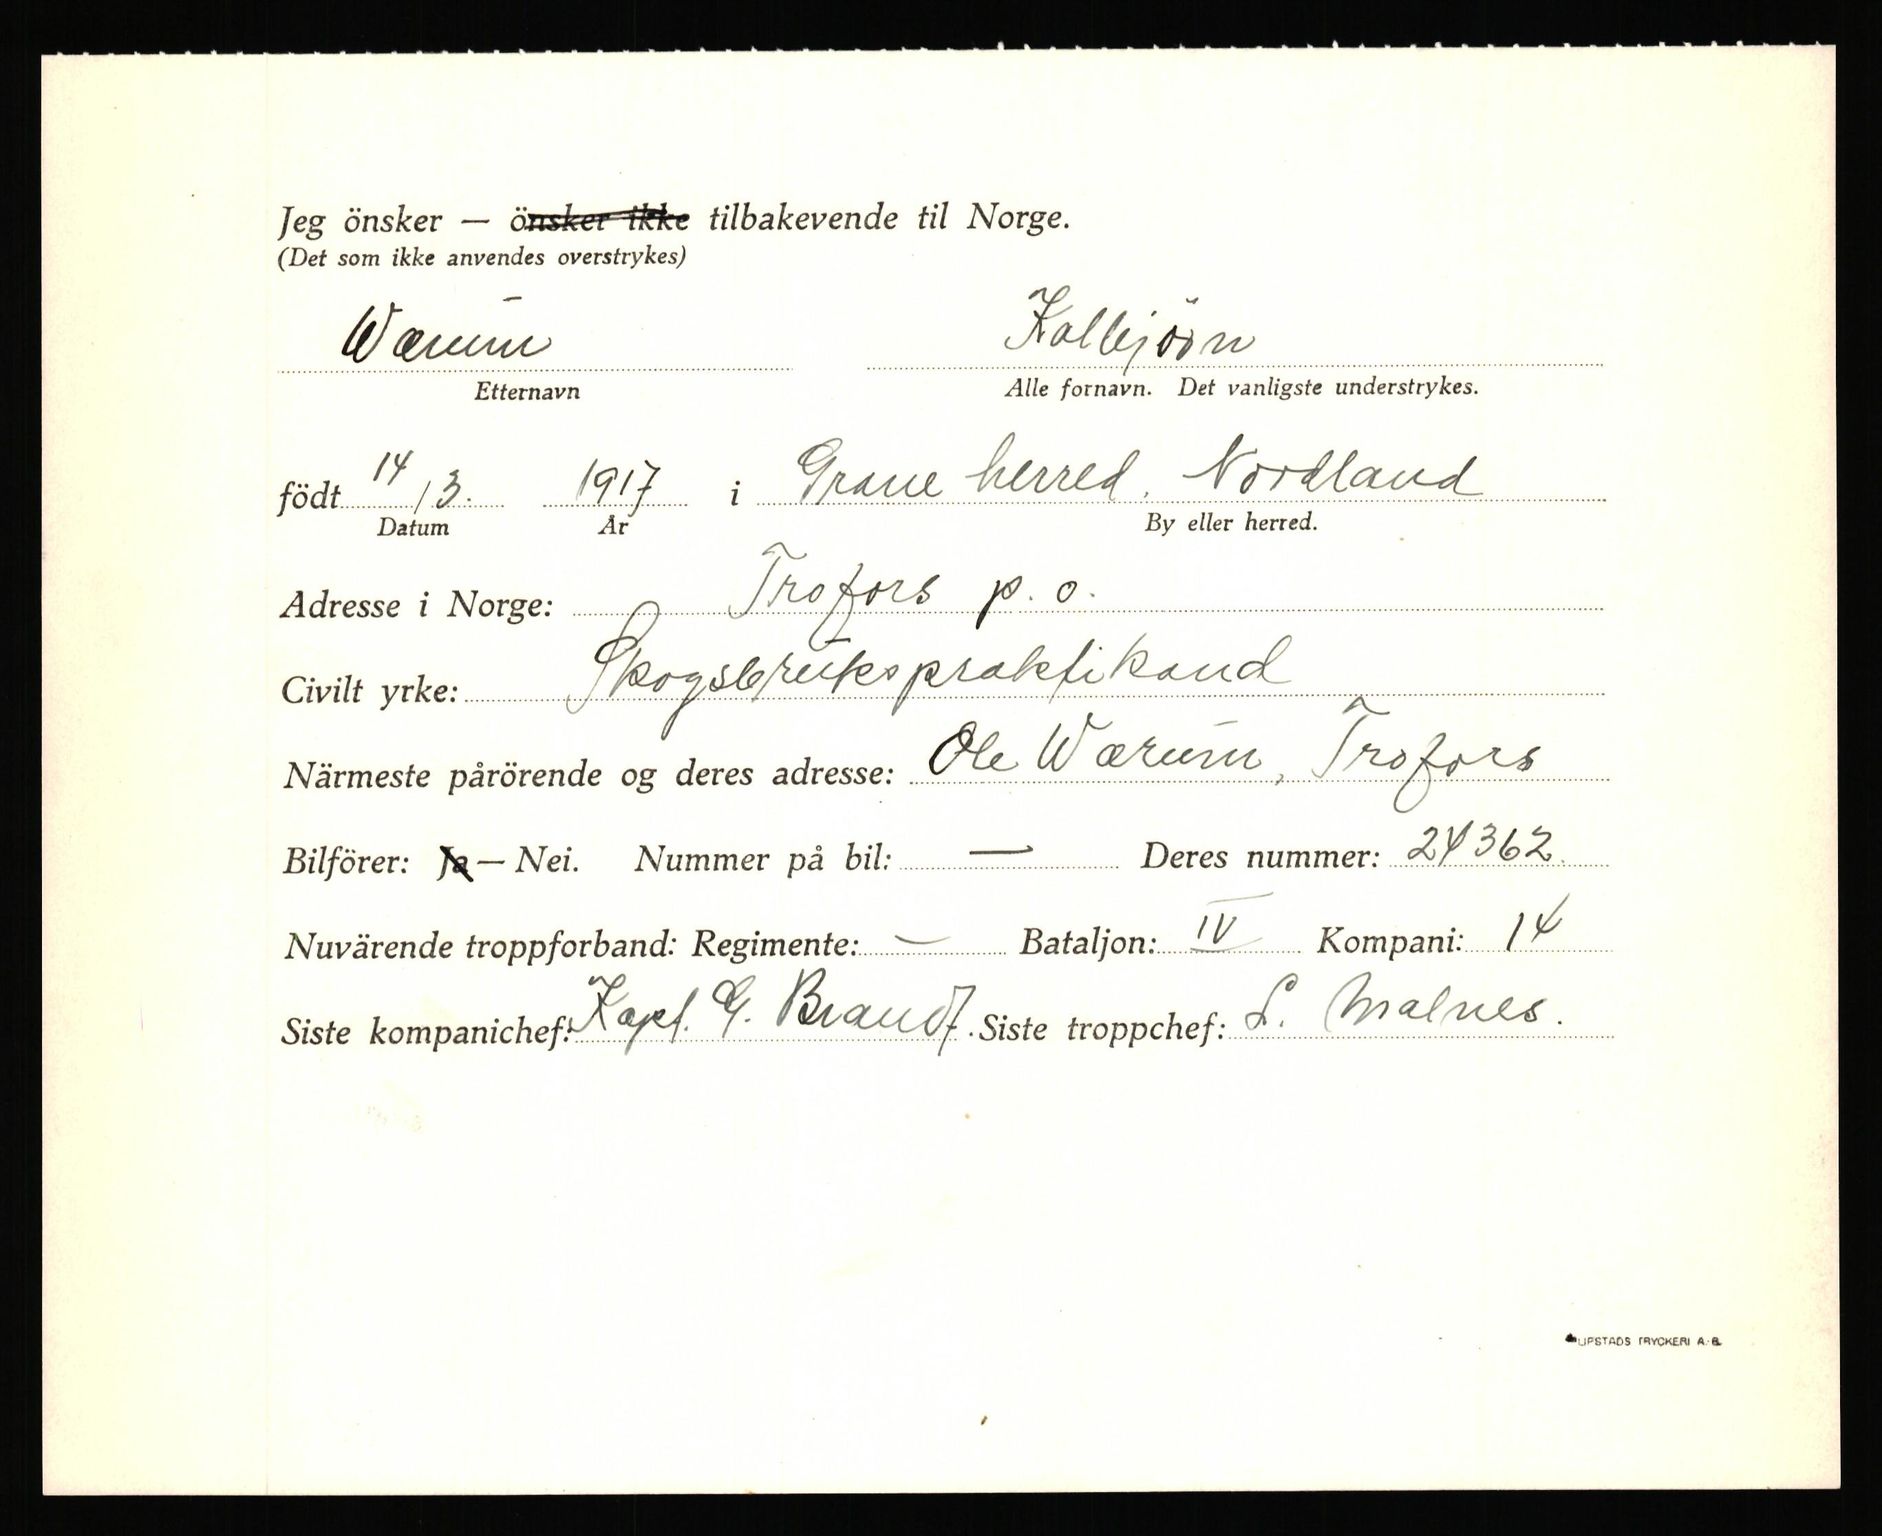 Jeg önsker — önsker ikke tilbakevende til Norge.
(Det som ikke anvendes overstrykes)
Wærum Kolbjörn
Etternavn Alle fornavn. Det vanligste understrykes.
födt 14/3. 1917 i Grane herred. Nordland
Datum År By eller herred.
Adresse i Norge: Trofors p. o.
Civilt yrke: Skogsbrukspraktikand
Närmeste pårörende og deres adresse: Ole Wærum, Trofors
Bilförer: Ja — Nei. Nummer på bil: — Deres nummer: 24362.
Nuvärende troppforband: Regimente: — Bataljon: IV Kompani: 14
Siste kompanichef: Kapt. G. Brandt. Siste troppchef: L. Malnes.
LIPSTADS TRYCKERI A.-B.